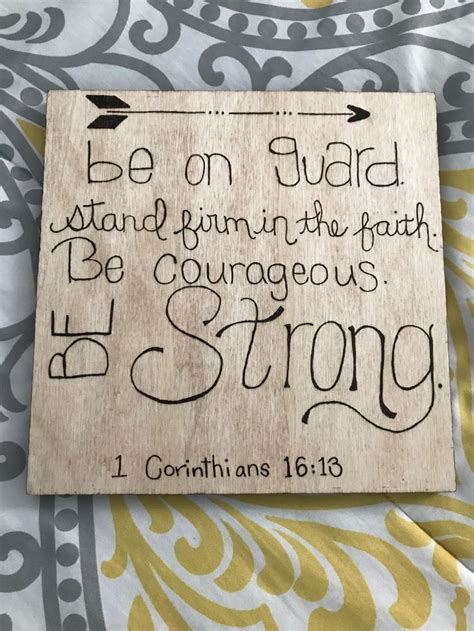 be on guard.
stand firm in the faith.
Be courageous.
BE Strong.
1 Corinthians 16:13